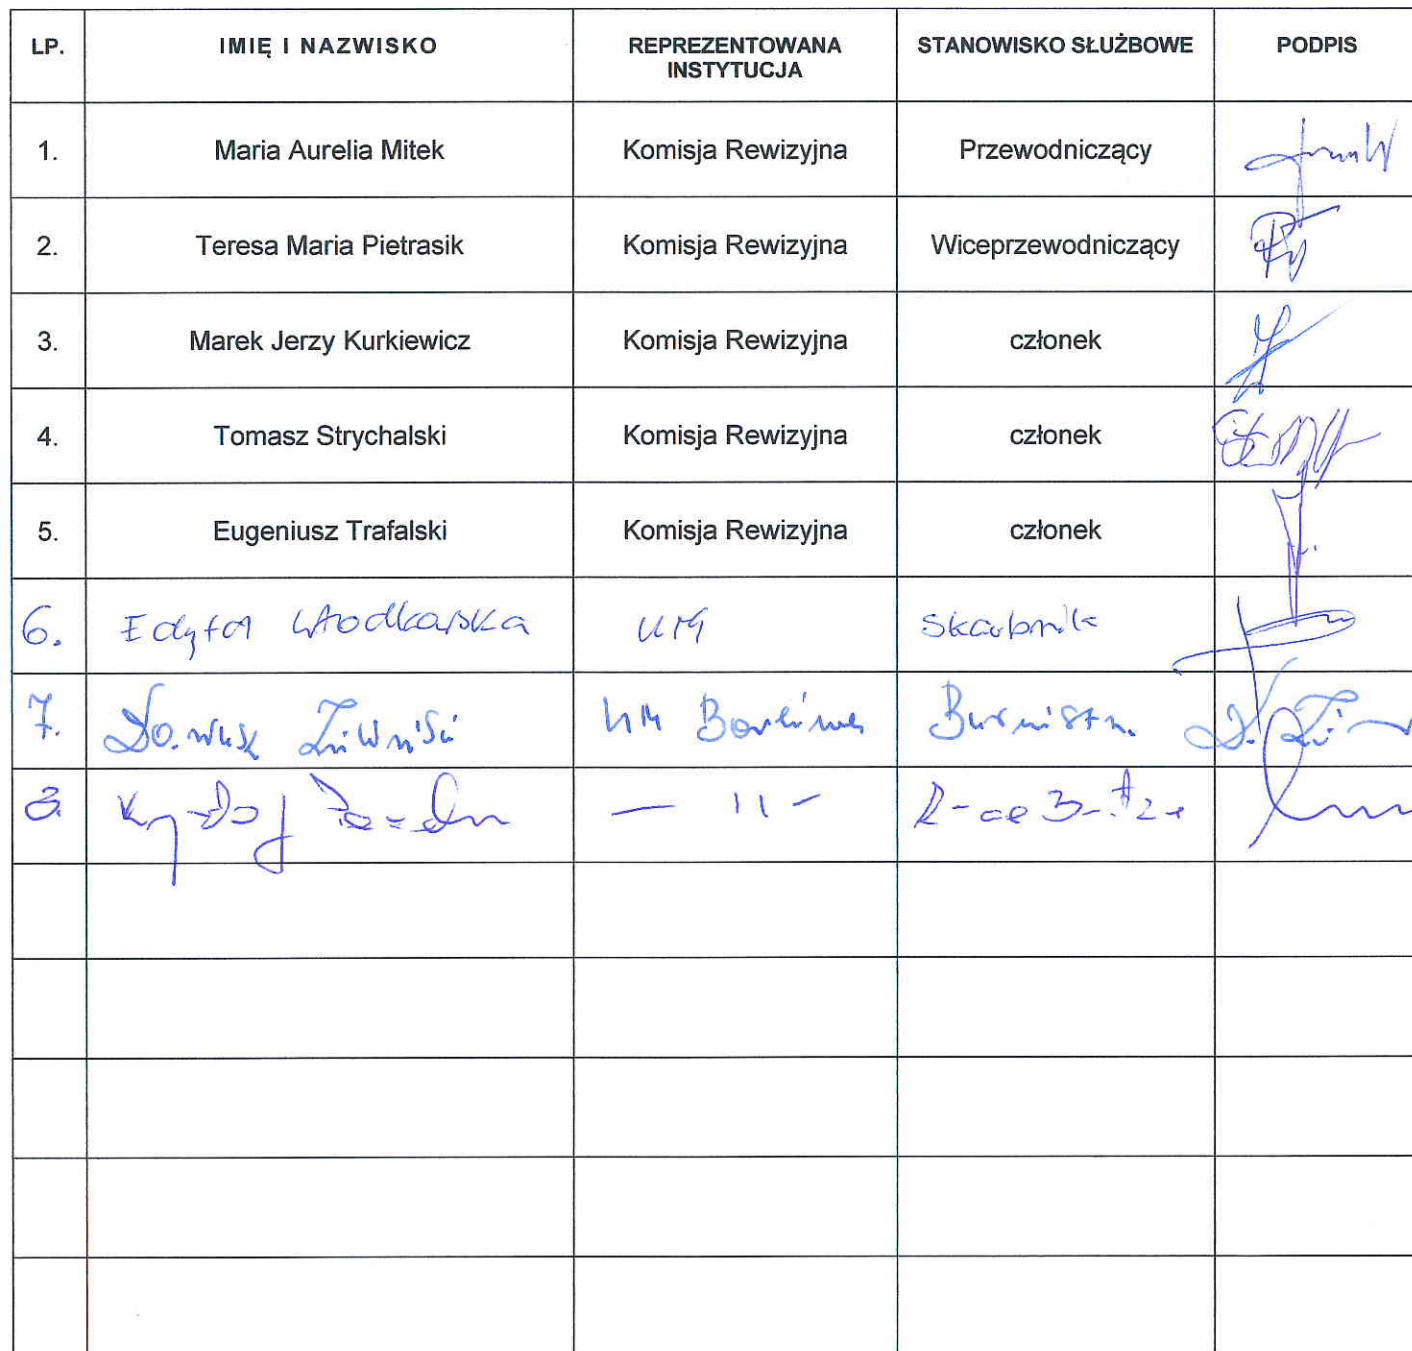 LP. IMIĘ I NAZWISKO REPREZENTOWANA INSTYTUCJA STANOWISKO SŁUŻBOWE PODPIS
1. Maria Aurelia Mitek Komisja Rewizyjna Przewodniczący
2. Teresa Maria Pietrasik Komisja Rewizyjna Wiceprzewodniczący
3. Marek Jerzy Kurkiewicz Komisja Rewizyjna członek
4. Tomasz Strychalski Komisja Rewizyjna członek
5. Eugeniusz Trafalski Komisja Rewizyjna członek
6. Edyta UM Skarbnik
7. UM
8. — 11 —